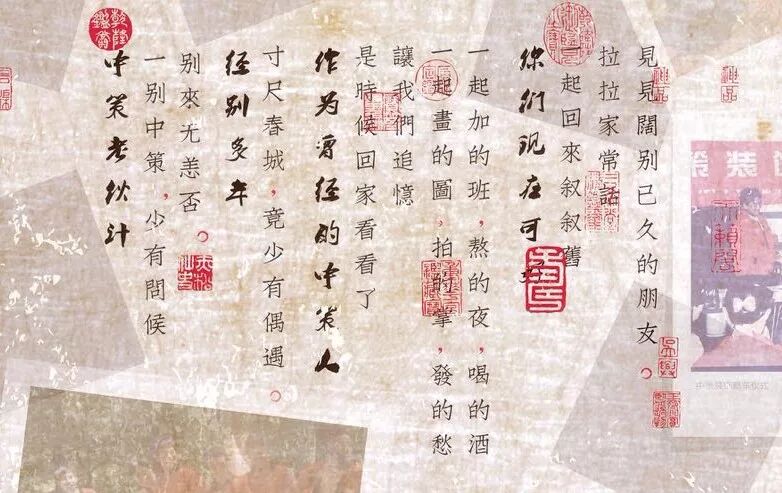 中策老伙计
一别中策，少有問候
别來无恙否。
经别多年
寸尺春城，竟少有偶遇。
作为曾经的中策人
是時候回家看看了
讓我們追憶
一起畫的圖，拍的掌，發的愁
一起加的班，熬的夜，喝的酒
你们现在可
一起回來叙叙舊
拉拉家常話
見見闊别已久的朋友。
乾隆鑑賞
神品
策装